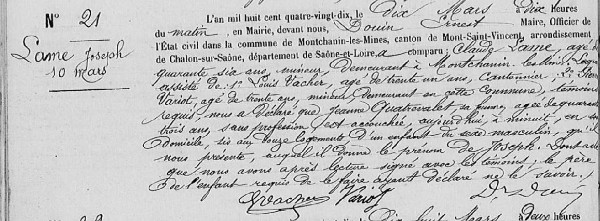 N° 21
Lame Joseph
10 mars
L'an mil huit cent quatre-vingt-dix, le Dix Mars Dix heures
du matin, en Mairie, devant nous, Douin Ernest Maire, Officier de
l'État civil dans la commune de Montchanin-les-Mines, canton de Mont-Saint-Vincent, arrondissement
de Chalon-sur-Saône, département de Saône-et-Loire, a comparu; Claude Lame, agé de
quarante six ans, mineur, demeurant à Montchanin les Mines, Lequel
assisté de 1° Louis Vacher, agé de trente un ans, Cantonnier; 2°
Variot, agé de trente ans, mineur demeurant en cette Commune, témoins
requis, nous a déclaré que Jeanne Quatrevalet sa femme, agée de quarante
trois ans, sans profession est accouchée, aujourd'hui, à minuit, en son
domicile, sis aux douze logements d'un enfant du sexe masculin, qu'il
nous présente, auquel il donne le prénom de Joseph. Dont acte
que nous avons après lecture signé avec les témoins; le père
de l'enfant requis de le faire ayant déclaré ne le savoir.
Vacher Variot
Dix huit Mars à Deux heures